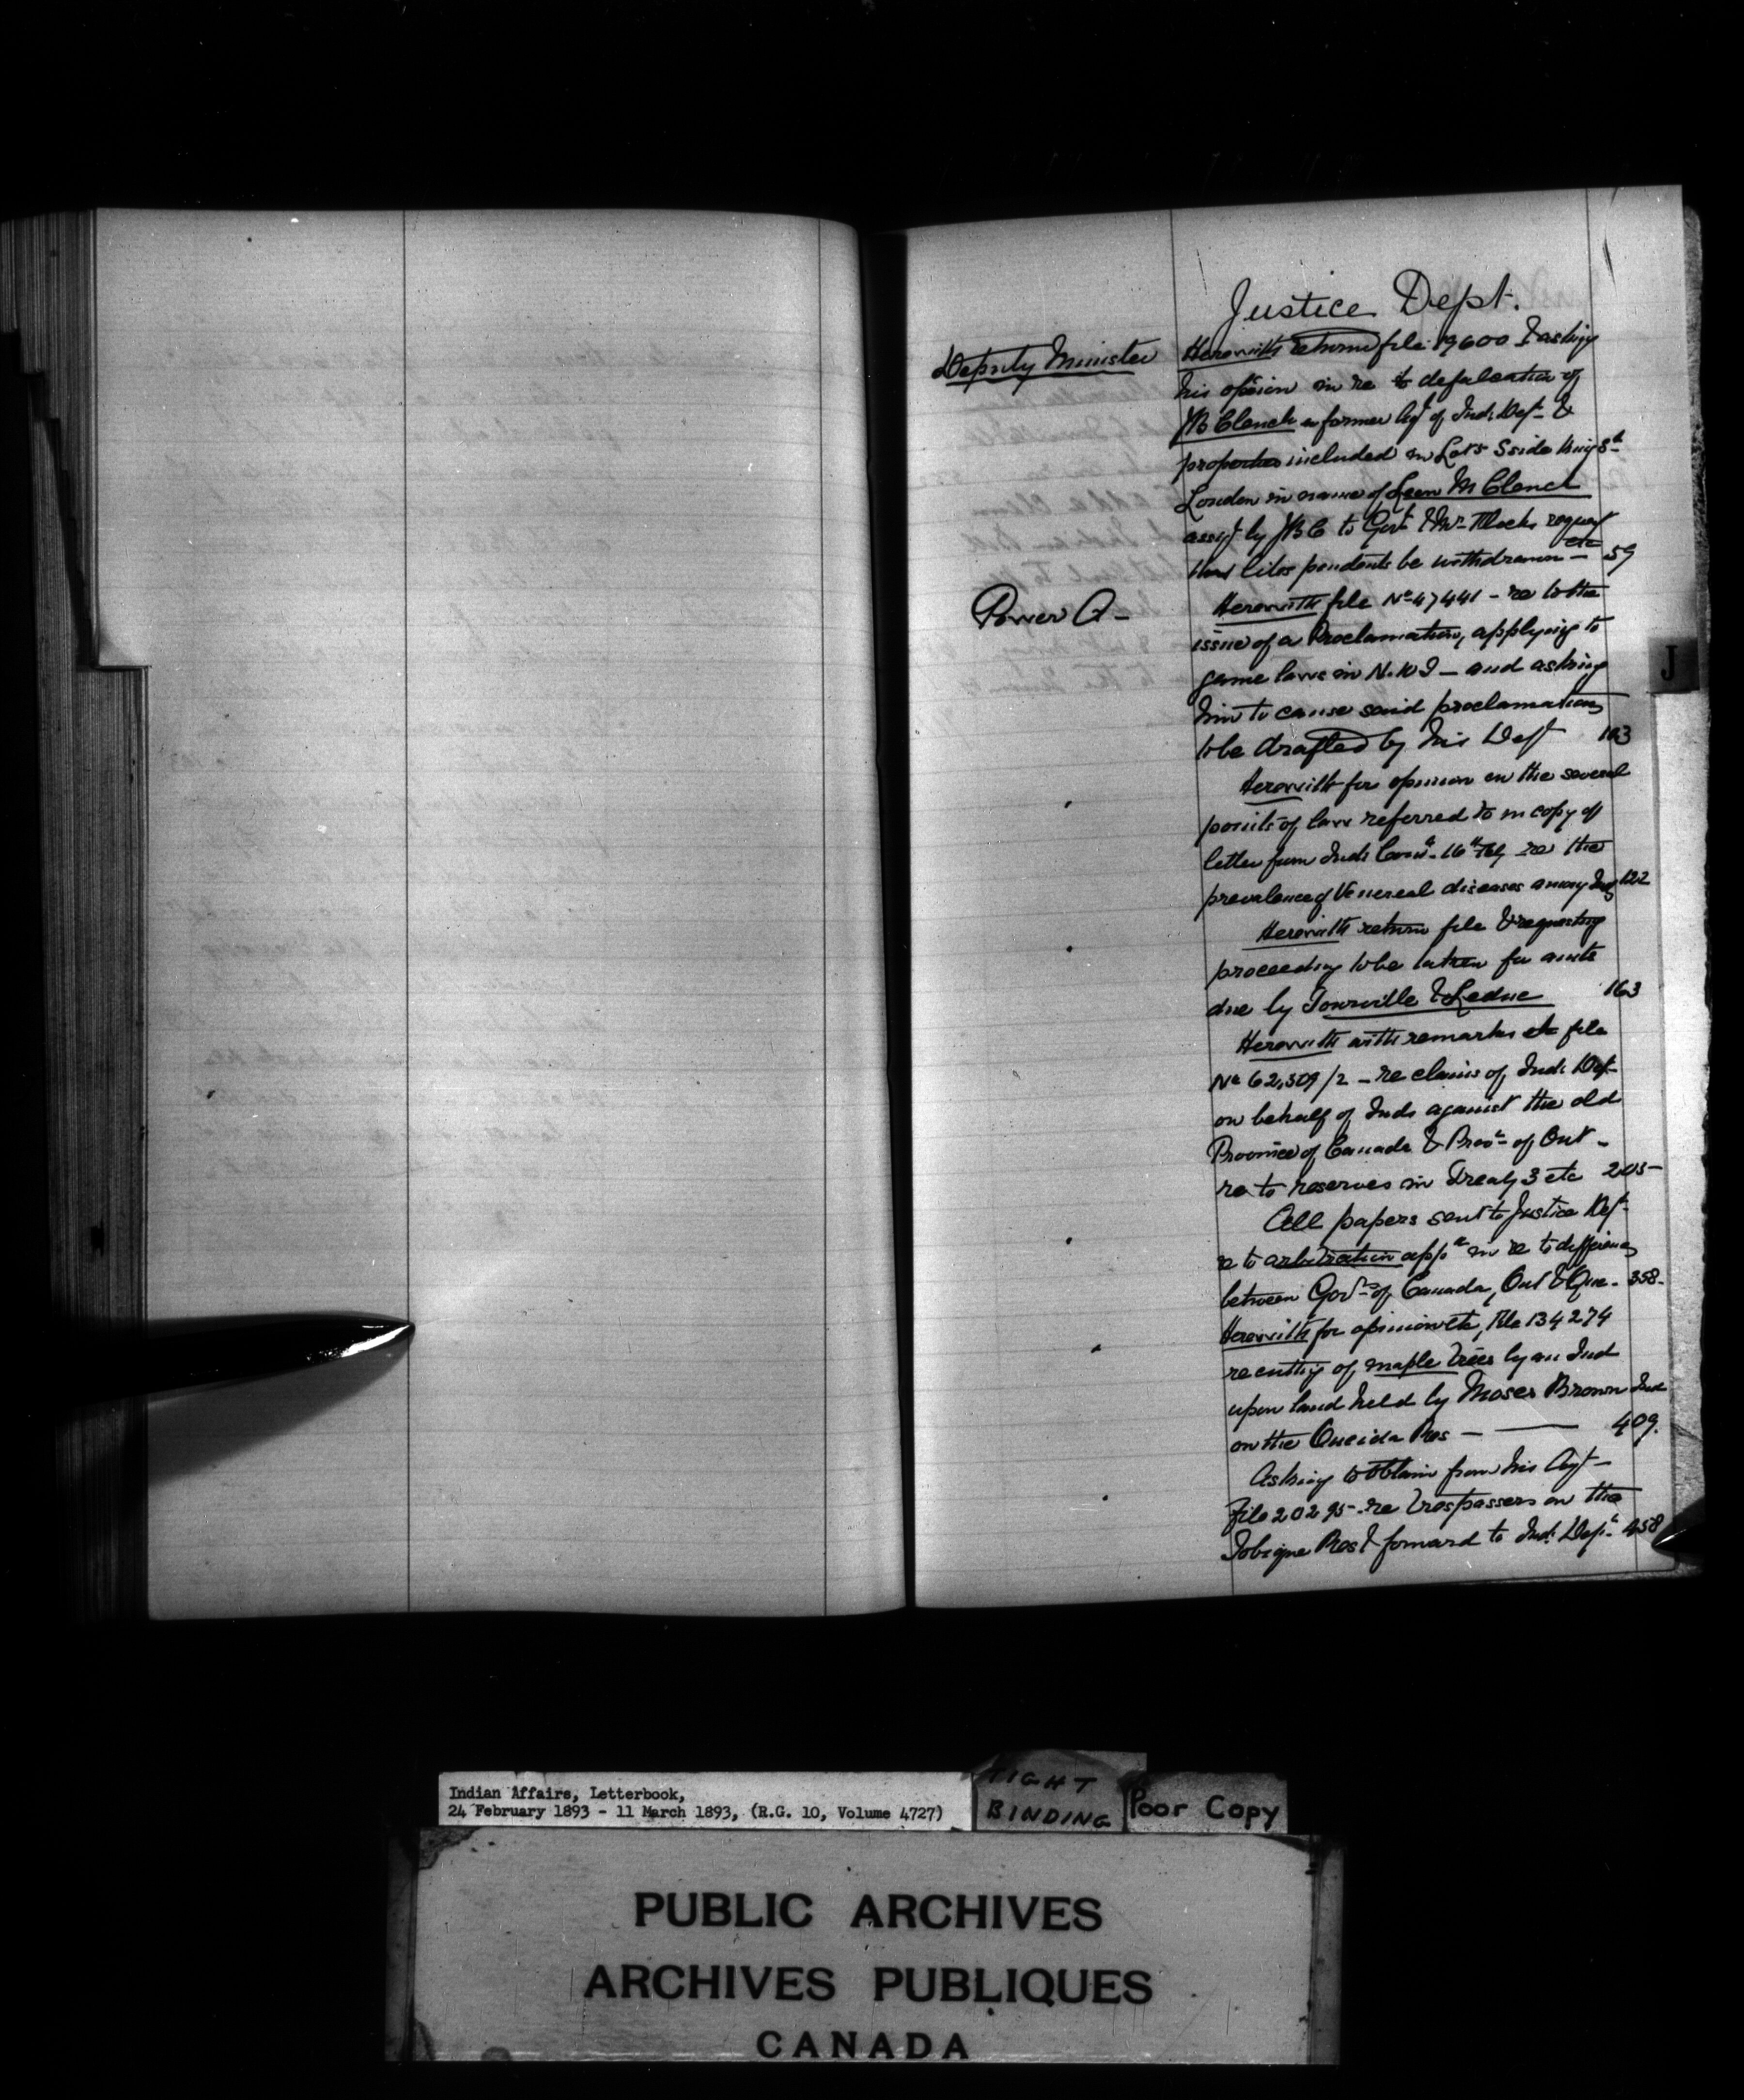 Justice Dept.
Deputy Minister
Herewith return file 19600 & asking
his opinion in re to defalcation of
JB Clench a former Agt of Ind. Dept &
properties included in Lot 5 S side King St
London in name of Leon M Clench
assigd by JBC to Govt & Mr request
that lites pendents be withdrawn — etc 59
Power A —
Herewith file No 47441 - re to the
issue of a Proclamation, applying to
game laws in N.W.T — and asking
him to cause said proclamation
to be drafted by his Dept 103
Herewith for opinion on the several
points of law referred to in copy of
letter from Inds Comr. 16th re the
prevalence of Venereal diseases among Inds 122
Herewith return file & requesting
proceeding to be taken for amts
due by Tourville & Leduc 163
Herewith with remarks etc file
No 62,509/2 - re claims of Ind. Dept
on behalf of Inds against the old
Province of Canada & Provce of Ont -
re to reserves in Treaty 3 etc 205 -
All papers sent to Justice Dept.
re to arbitration appd in re to differences
between Govts of Canada, Ont & Que - 358 -
Herewith for opinion etc, File 134274
re cutting of maple trees by an Ind
upon land held by Moses Brown Ind
on the Oneida Res — — 409.
Asking to obtain from his Agt —
File 20295 - re trespassers on the
Tobique Res & forward to Ind. Dept. 458
J
Indian Affairs, Letterbook,
24 February 1893 - 11 March 1893, (R.G. 10, Volume 4727)
TIGHT
BINDING
Poor Copy
PUBLIC ARCHIVES
ARCHIVES PUBLIQUES
CANADA